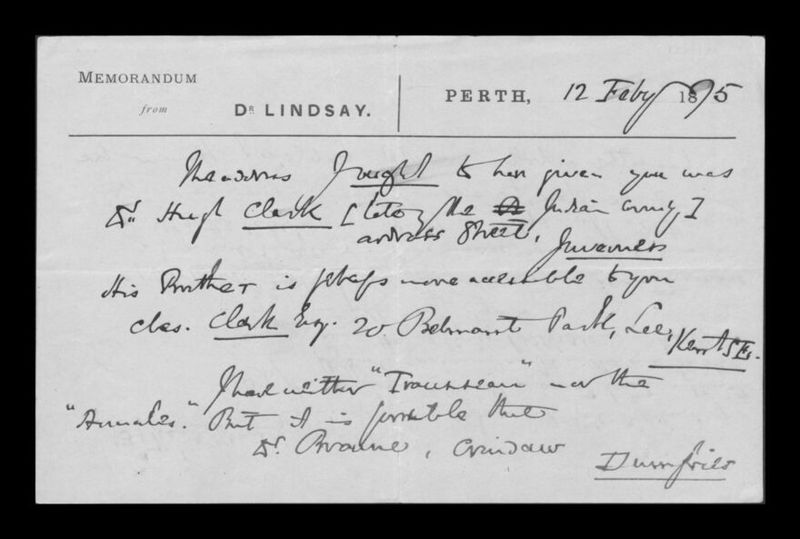 MEMORANDUM
from
DR LINDSAY.
PERTH, 12 Feby 1875
The address I ought to have given you was
Dr. Hugh Clark [late of the Indian army]
address Street, Inverness
His Brother is perhaps more accessible to you
Chas. Clark Esq. 20 Belmont Park, Lee, Kent S.E.
I have neither "Trousseau" nor the
"Annales." But it is possible that
Dr. Browne, Crindau
Dumfries